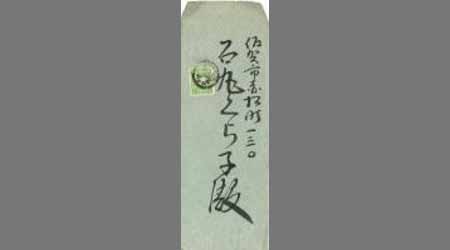 佐賀市赤松町一三〇
石丸くら子殿